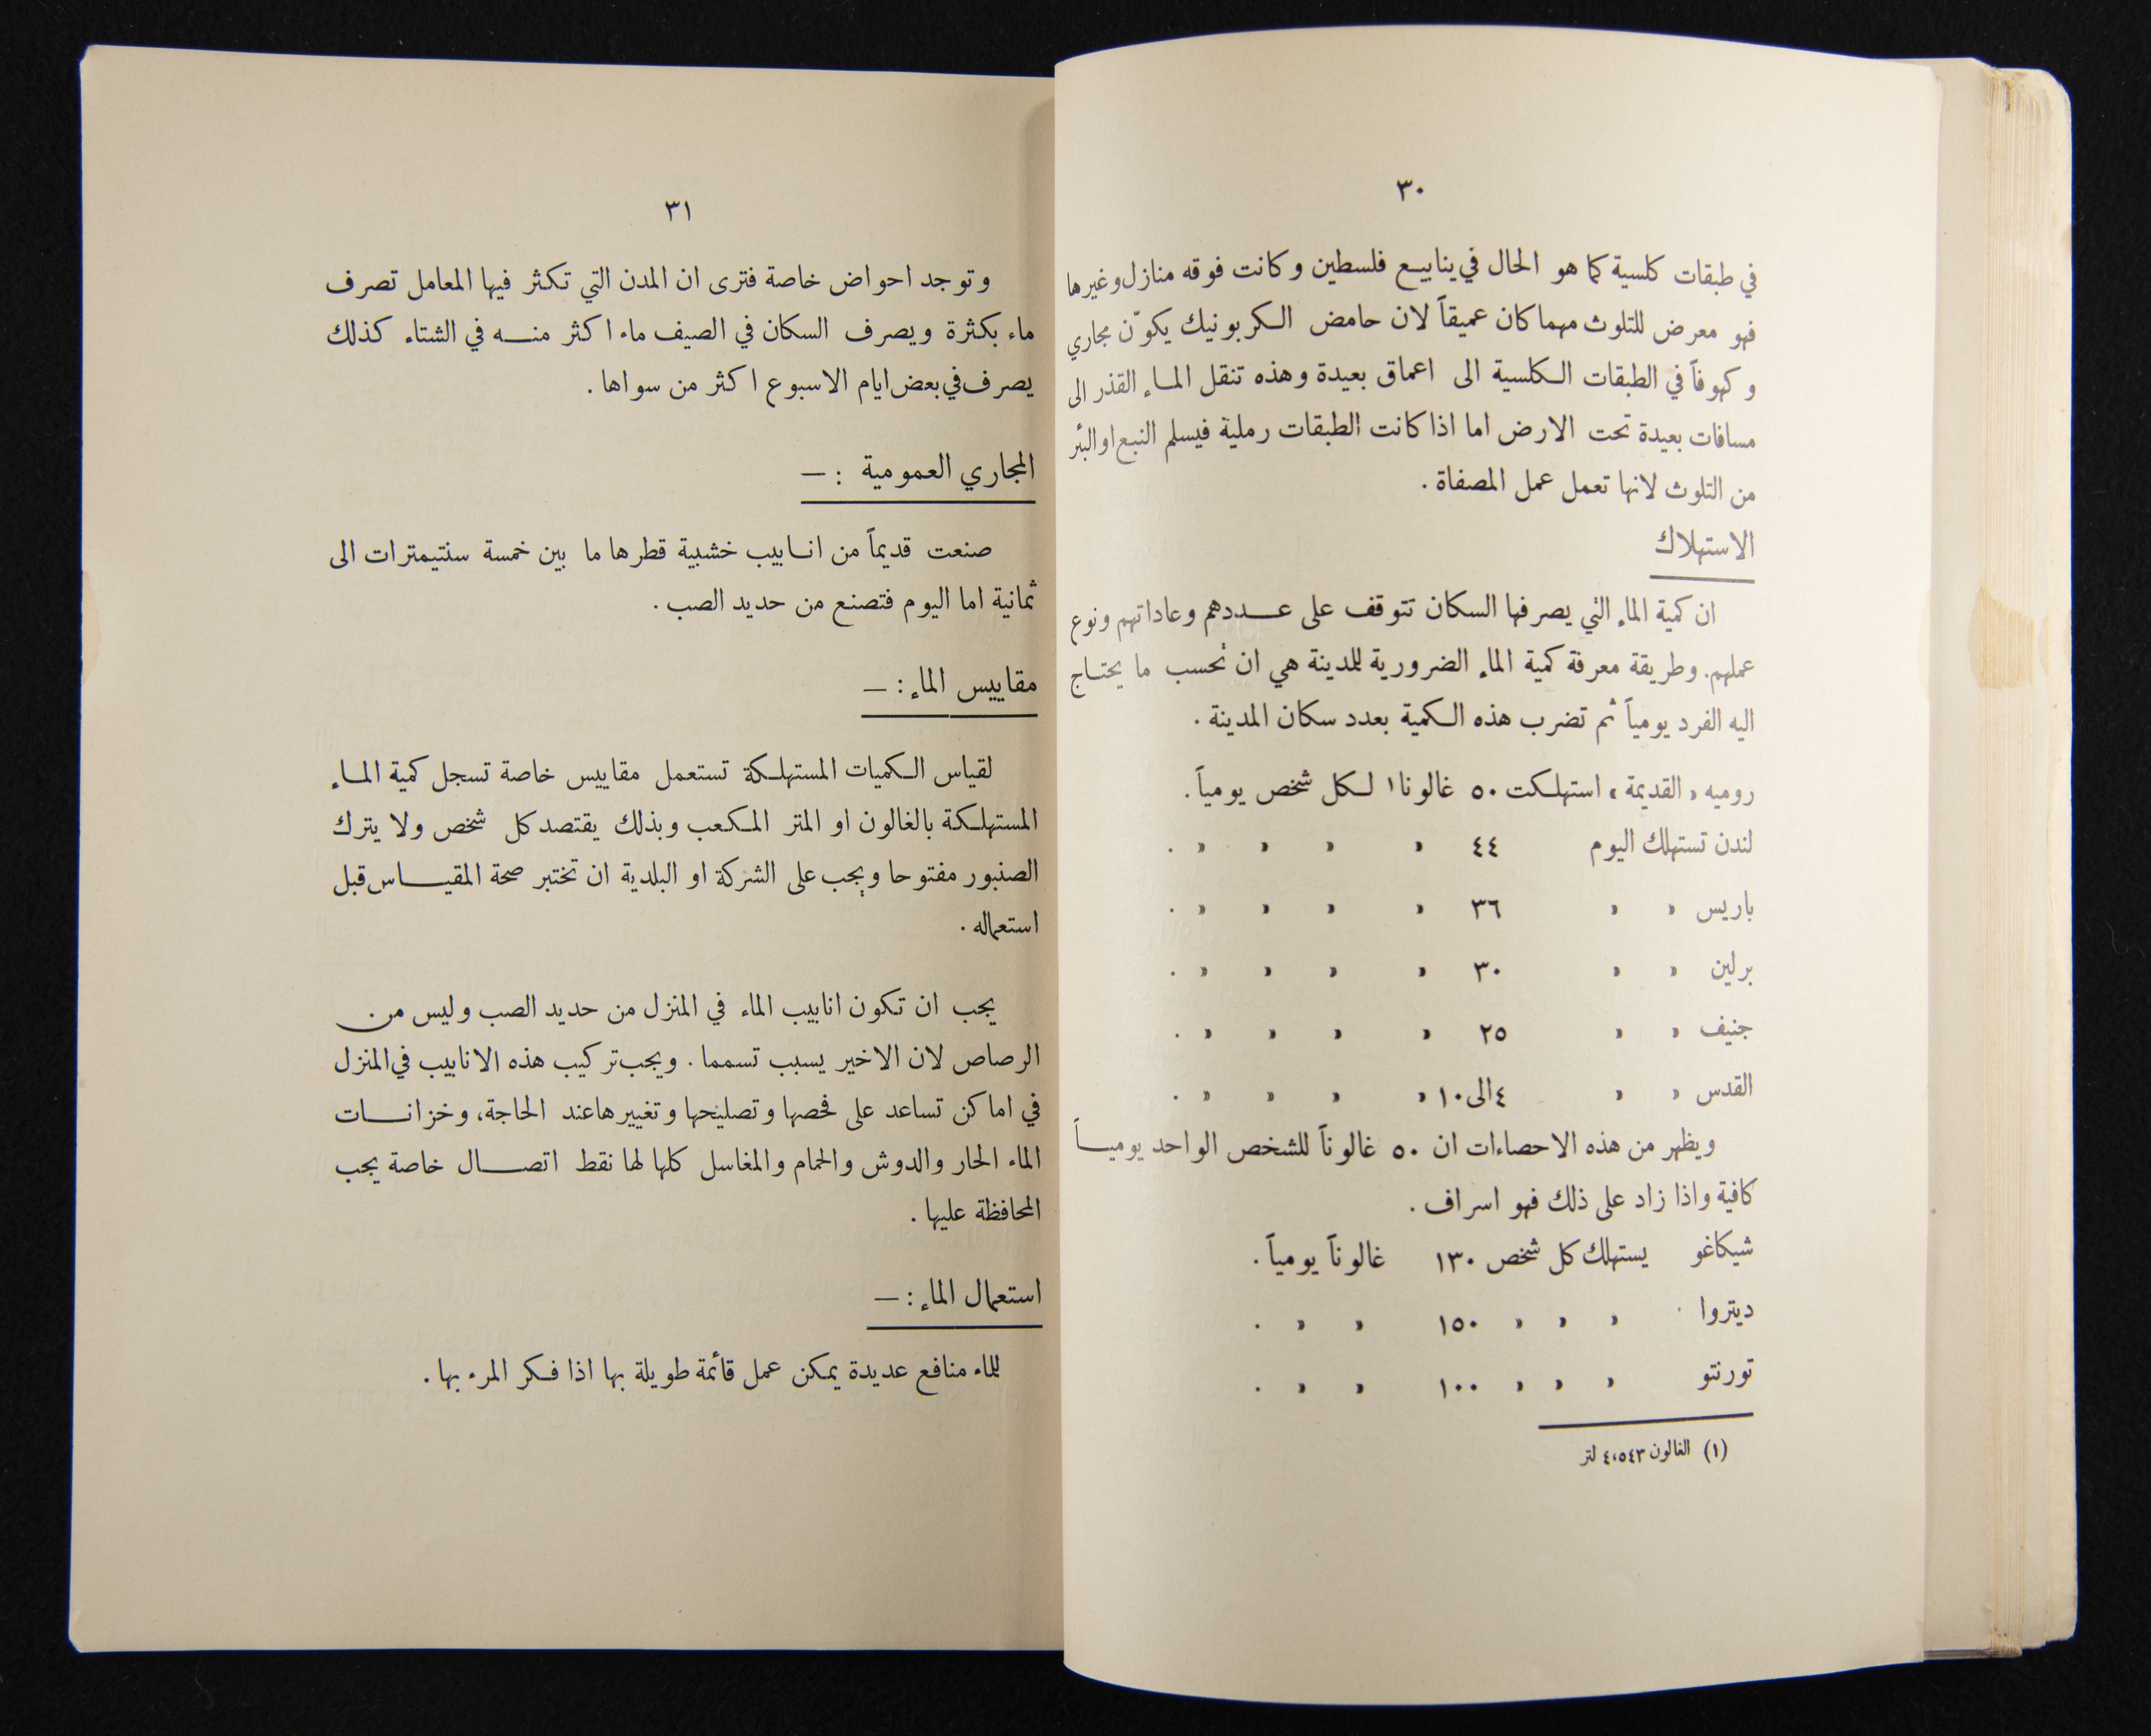 ٣٠
في طبقات كلسية كما هو الحال في ينابيع فلسطين وكانت فوقه منازل وغيرها
فهو معرض للتلوث مهما كان عميقاً لان حامض الكربونيك يكوّن مجاري
وكهوفاً في الطبقات الكلسية الى اعماق بعيدة وهذه تنقل الماء القذر الى
مسافات بعيدة تحت الارض اما اذا كانت الطبقات رملية فيسلم النبع او البئر
من التلوث لانها تعمل عمل المصفاة .
الاستهلاك
ان كمية الماء التي يصرفها السكان تتوقف على عددهم وعاداتهم ونوع
عملهم. وطريقة معرفة كمية الماء الضرورية للمدينة هي ان نحسب ما يحتاج
اليه الفرد يومياً ثم تضرب هذه الكمية بعدد سكان المدينة .
روميه « القديمة » استهلكت ٥٠ غالونا١ لكل شخص يومياً.
لندن تستهلك اليوم ٤٤ » » » » » .
باريس » » ٣٦ » » » » .
برلين » » ٣٠ » » » » .
جنيف » » ٢٥ » » » » .
القدس » » ٤ الى ١٠ » » » » .
ويظهر من هذه الاحصاءات ان ٥٠ غالوناً للشخص الواحد يومياً
كافية واذا زاد على ذلك فهو اسراف .
شيكاغو يستهلك كل شخص ١٣٠ غالوناً يومياً .
ديتروا » » » ١٥٠ » » .
تورنتو » » » ١٠٠ » » .
(١) الغالون ٤،٥٤٣ لتر
٣١
وتوجد احواض خاصة فترى ان المدن التي تكثر فيها المعامل تصرف
ماء بكثرة ويصرف السكان في الصيف ماء اكثر منه في الشتاء كذلك
يصرف في بعض ايام الاسبوع اكثر من سواها .
المجاري العمومية : —
صنعت قديماً من انابيب خشبية قطرها ما بين خمسة سنتيمترات الى
ثمانية اما اليوم فتصنع من حديد الصب .
مقاييس الماء : —
لقياس الكميات المستهلكة تستعمل مقاييس خاصة تسجل كمية الماء
المستهلكة بالغالون او المتر المكعب وبذلك يقتصد كل شخص ولا يترك
الصنبور مفتوحا ويجب على الشركة او البلدية ان تختبر صحة المقياس قبل
استعماله .
يجب ان تكون انابيب الماء في المنزل من حديد الصب وليس من
الرصاص لان الاخير يسبب تسمما . ويجب تركيب هذه الانابيب في المنزل
في اماكن تساعد على فحصها وتصليحها وتغييرها عند الحاجة، وخزانات
الماء الحار والدوش والحمام والمغاسل كلها لها نقط اتصال خاصة يجب
المحافظة عليها .
استعمال الماء : —
للماء منافع عديدة يمكن عمل قائمة طويلة بها اذا فكر المرء بها .